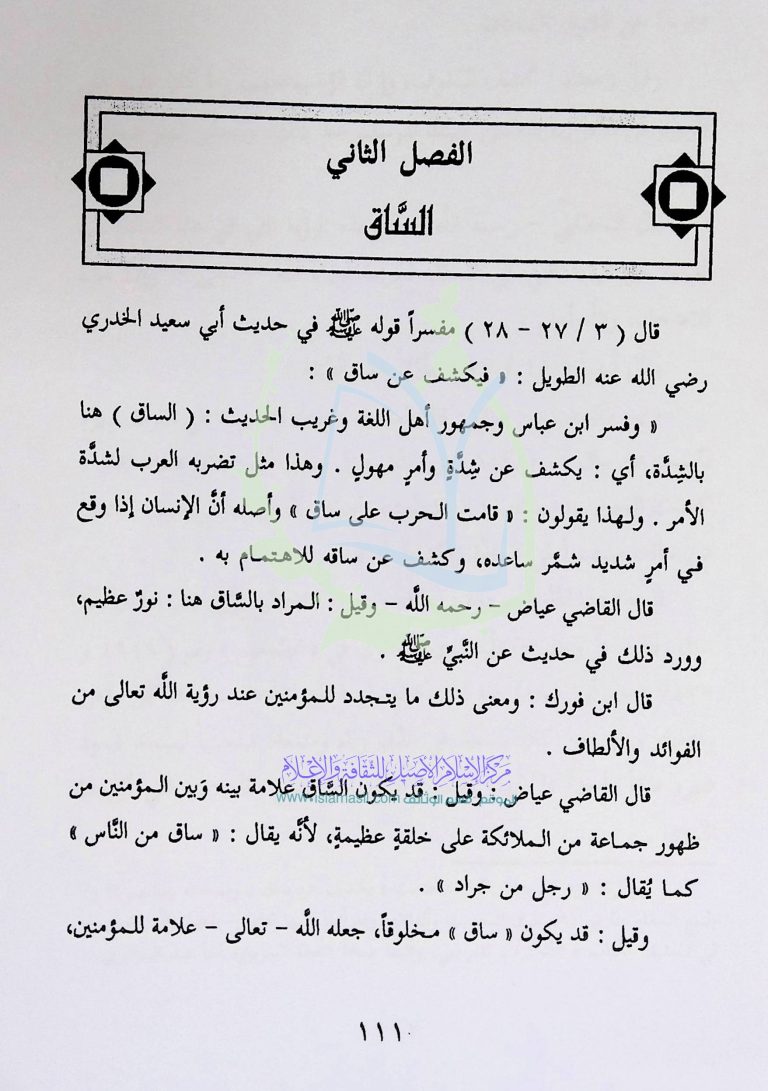 الفصل الثاني
السَّاق
قال ( ٣ / ٢٧ - ٢٨ ) مفسراً قوله ﷺ في حديث أبي سعيد الخدري
رضي الله عنه الطويل : « فيكشف عن ساق » :
« وفسر ابن عباس وجمهور أهل اللغة وغريب الحديث : ( الساق ) هنا
بالشِدَّة، أي : يكشف عن شِدَّةٍ وأمرٍ مهولٍ . وهذا مثل تضربه العرب لشدَّة
الأمر . ولهذا يقولون : « قامت الحرب على ساق » وأصله أنَّ الإنسان إذا وقع
في أمرٍ شديد شمَّر ساعده، وكشف عن ساقه للاهتمام به .
قال القاضي عياض - رحمه اللَّه - وقيل : المراد بالسَّاق هنا : نورٌ عظيم،
وورد ذلك في حديث عن النَّبيِّ ﷺ .
قال ابن فورك : ومعنى ذلك ما يتجدد للمؤمنين عند رؤية اللَّه تعالى من
الفوائد والألطاف .
مركز الإسلام الأصيل للثقافة والإعلام
قال القاضي عياض : وقيل : قد يكون السَّاق علامة بينه وَبين المؤمنين من
www.islamasil.com
ظهور جماعة من الملائكة على خلقةٍ عظيمةٍ، لأنَّه يقال : « ساق من النَّاس »
كما يُقال : « رجل من جراد » .
وقيل : قد يكون « ساق » مخلوقاً، جعله اللَّه - تعالى - علامة للمؤمنين،
١١١